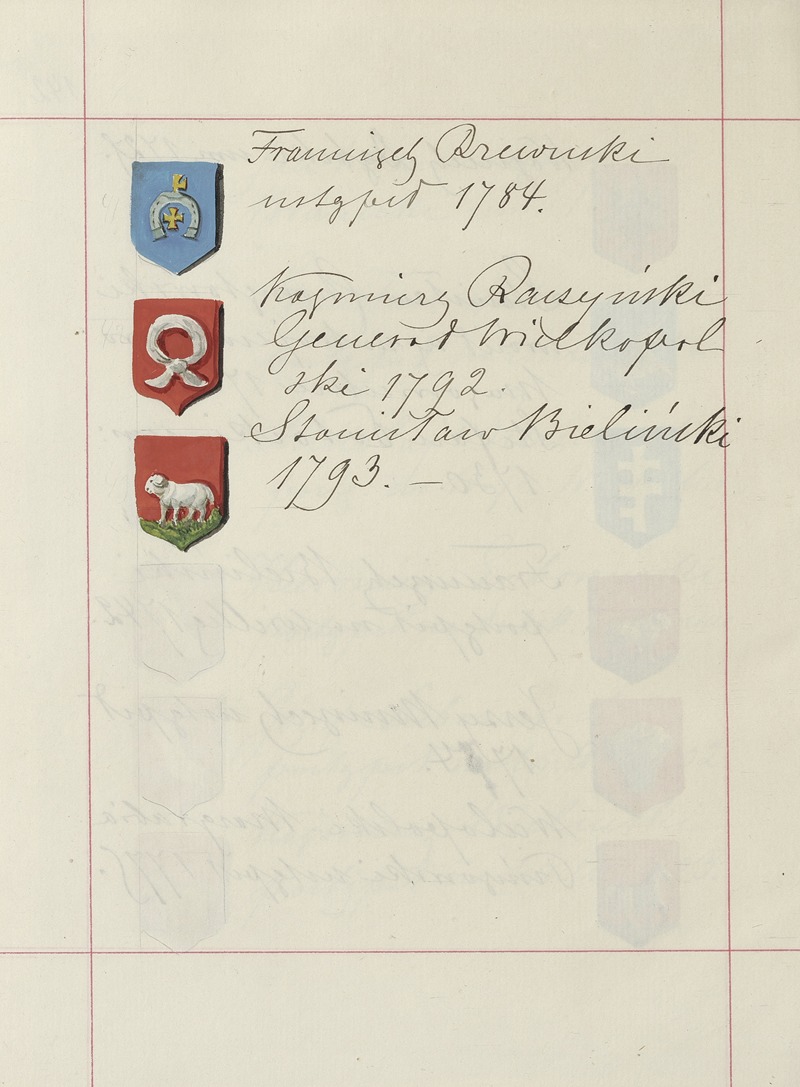 Franciszek Rzewuski
ustąpił 1784.
Kazmierz Raczyński
Generał Wielkopol
ski 1792.
Stanisław Bieliński
1793. –